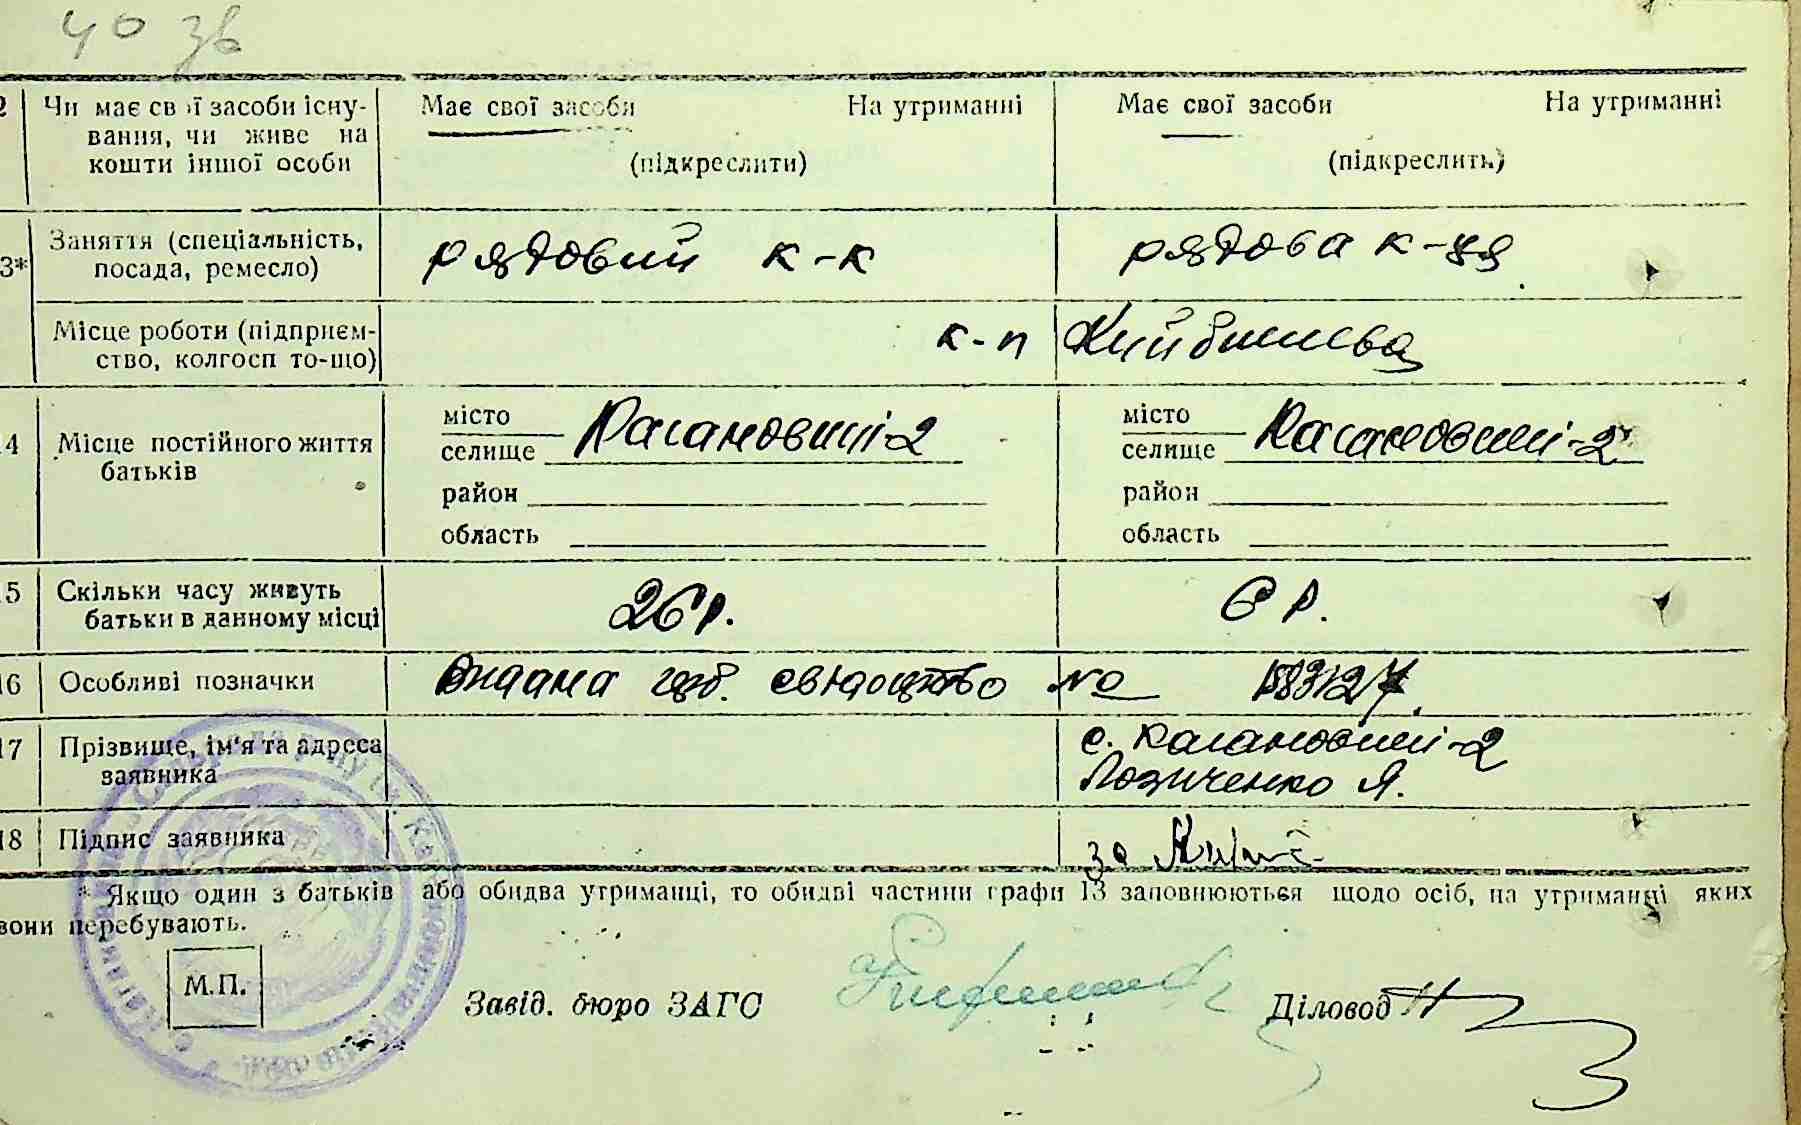 40 зв
2 Чи має свої засоби існу- Має свої засоби На утриманні Має свої засоби На утриманні
вання, чи живе на
кошти іншої особи (підкреслити) (підкреслить)
3* Заняття (спеціальність, рядовий к-к рядова к-ця
посада, ремесло)
Місце роботи (підприєм- к-п Куйбишева
ство, колгосп то-що)
4 Місце постійного життя місто Кагановичі-2 місто Кагановичі-2
батьків селище селище
район район
область область
5 Скільки часу живуть 26 р. 6 р.
батьки в данному місці
16 Особливі позначки видана свідоцтво №
17 Прізвище, ім'я та адреса с. Кагановичі-2
заявника Лозиченко Я.
18 Підпис заявника за
* Якщо один з батьків або обидва утриманці, то обидві частини графи 13 заповнюються щодо осіб, на утриманні яких
вони перебувають.
М.П. Завід. бюро ЗАГС Діловод